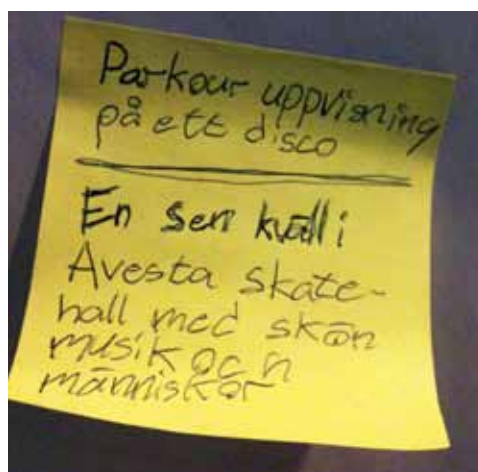 Parkour uppvisning
på ett disco
En sen kväll i
Avesta skate-
hall med skön
musik och
människor